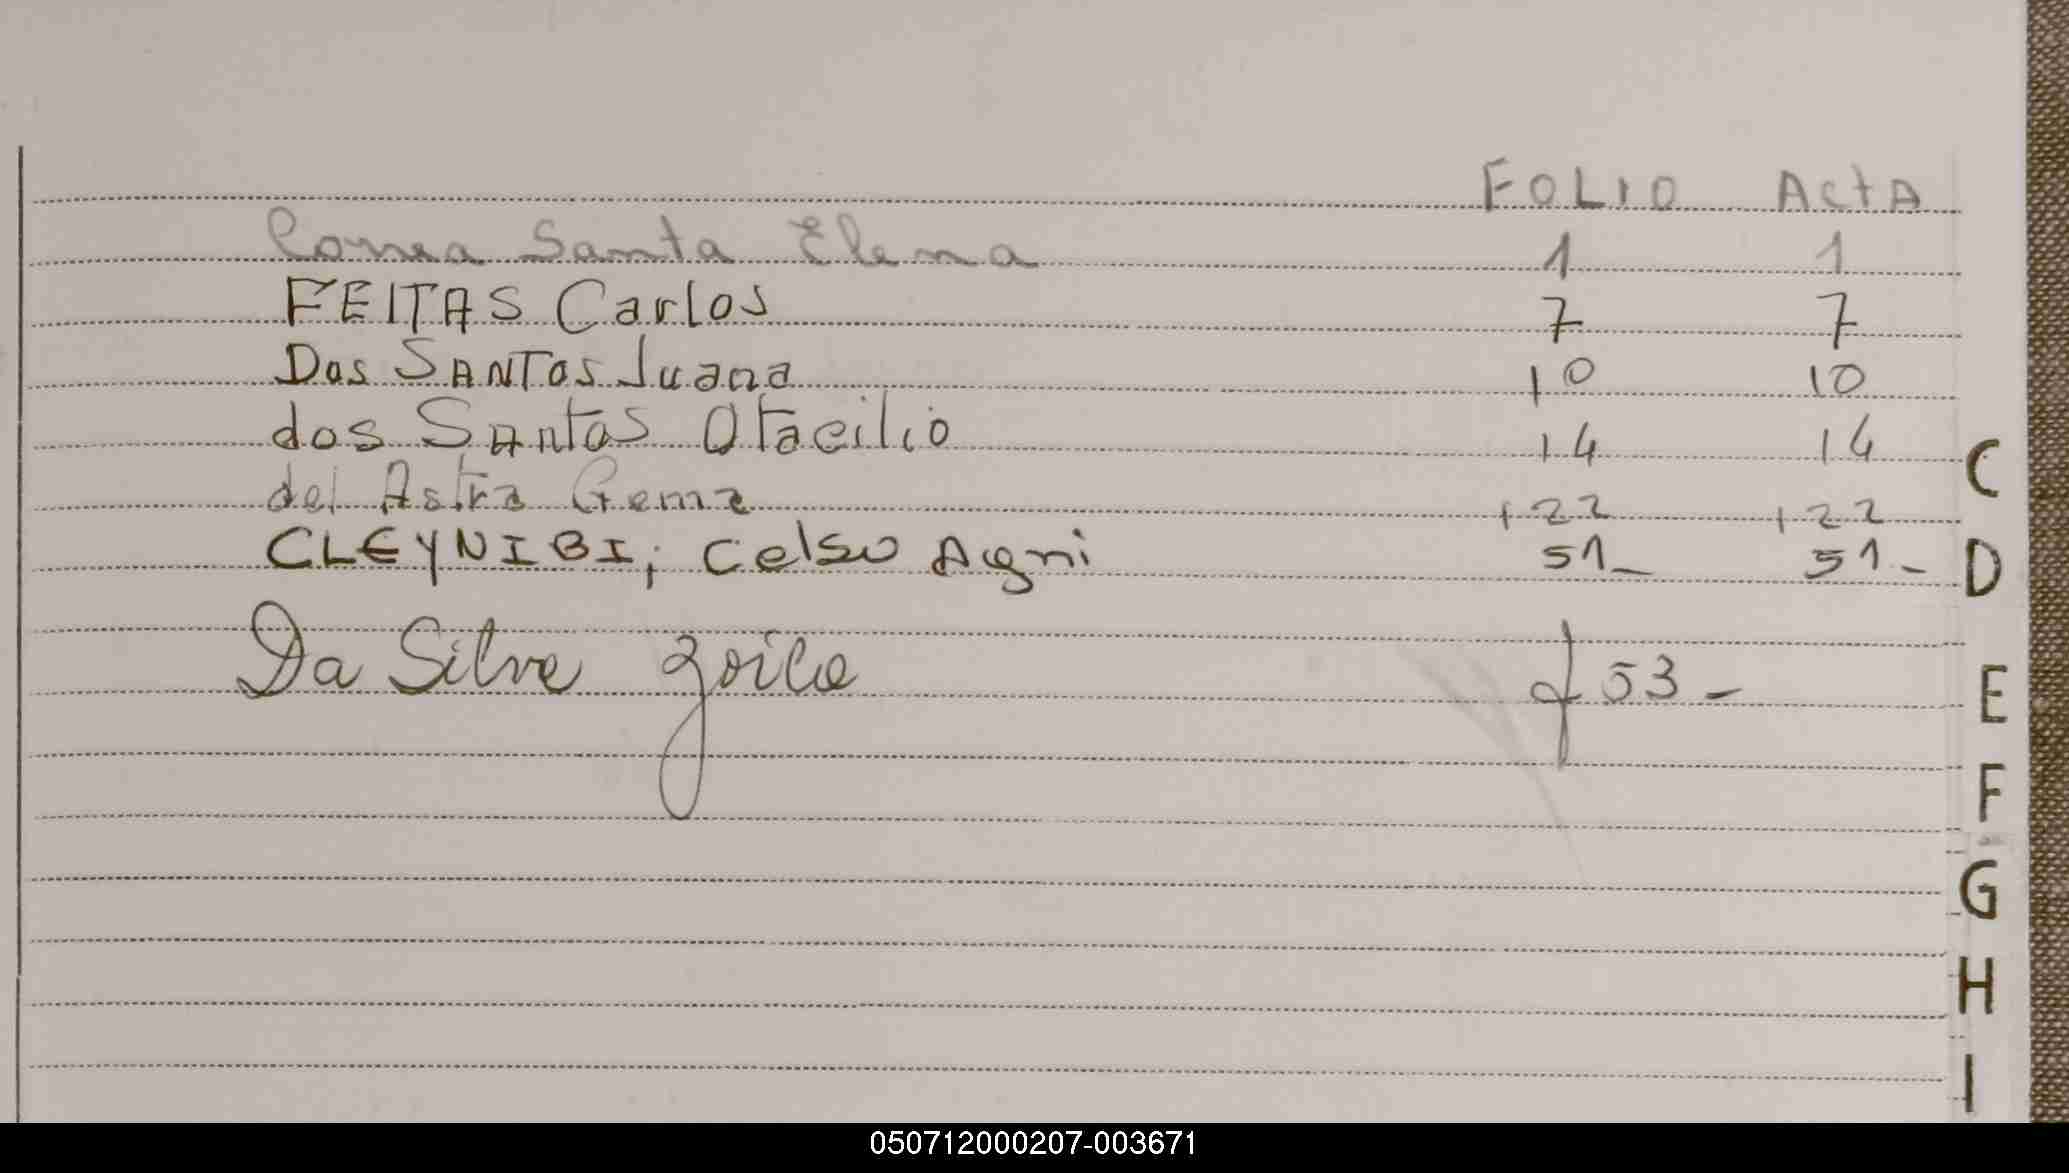 FOLIO ACtA
Correa Santa Elena 1 1
FEITAS Carlos 7 7
Dos SANTos Juana 10 10
dos Santos Otacilio 14 14
del Astra Gema +22 +22
CLEYNIBI, Celso Agni 51_ 51-
Da Silva Zoila f 53-
C
D
E
F
G
H
I
050712000207-003671